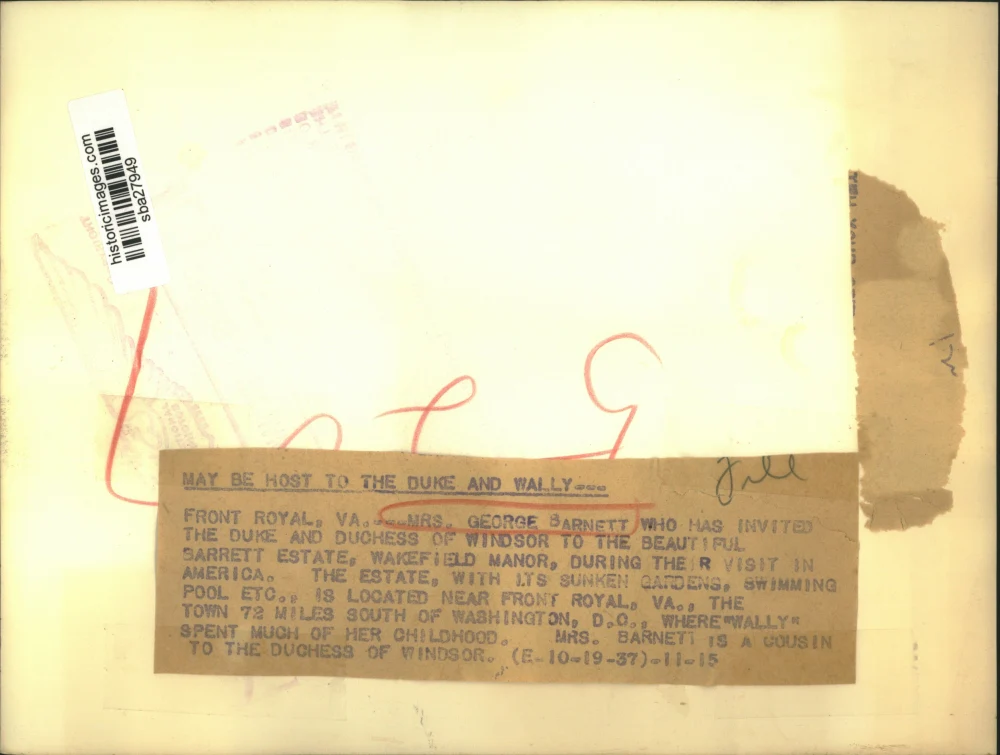 historicimages.com
sba27949
File
MAY BE HOST TO THE DUKE AND WALLY---
FRONT ROYAL, VA.---MRS. GEORGE BARNETT WHO HAS INVITED
THE DUKE AND DUCHESS OF WINDSOR TO THE BEAUTIFUL
BARRETT ESTATE, WAKEFIELD MANOR, DURING THE R VISIT IN
AMERICA. THE ESTATE, WITH ITS SUNKEN GARDENS, SWIMMING
POOL ETC., IS LOCATED NEAR FRONT ROYAL, VA., THE
TOWN 72 MILES SOUTH OF WASHINGTON, D.C., WHERE "WALLY"
SPENT MUCH OF HER CHILDHOOD. MRS. BARNETT IS A COUSIN
TO THE DUCHESS OF WINDSOR. (E-10-19-37)-11-15